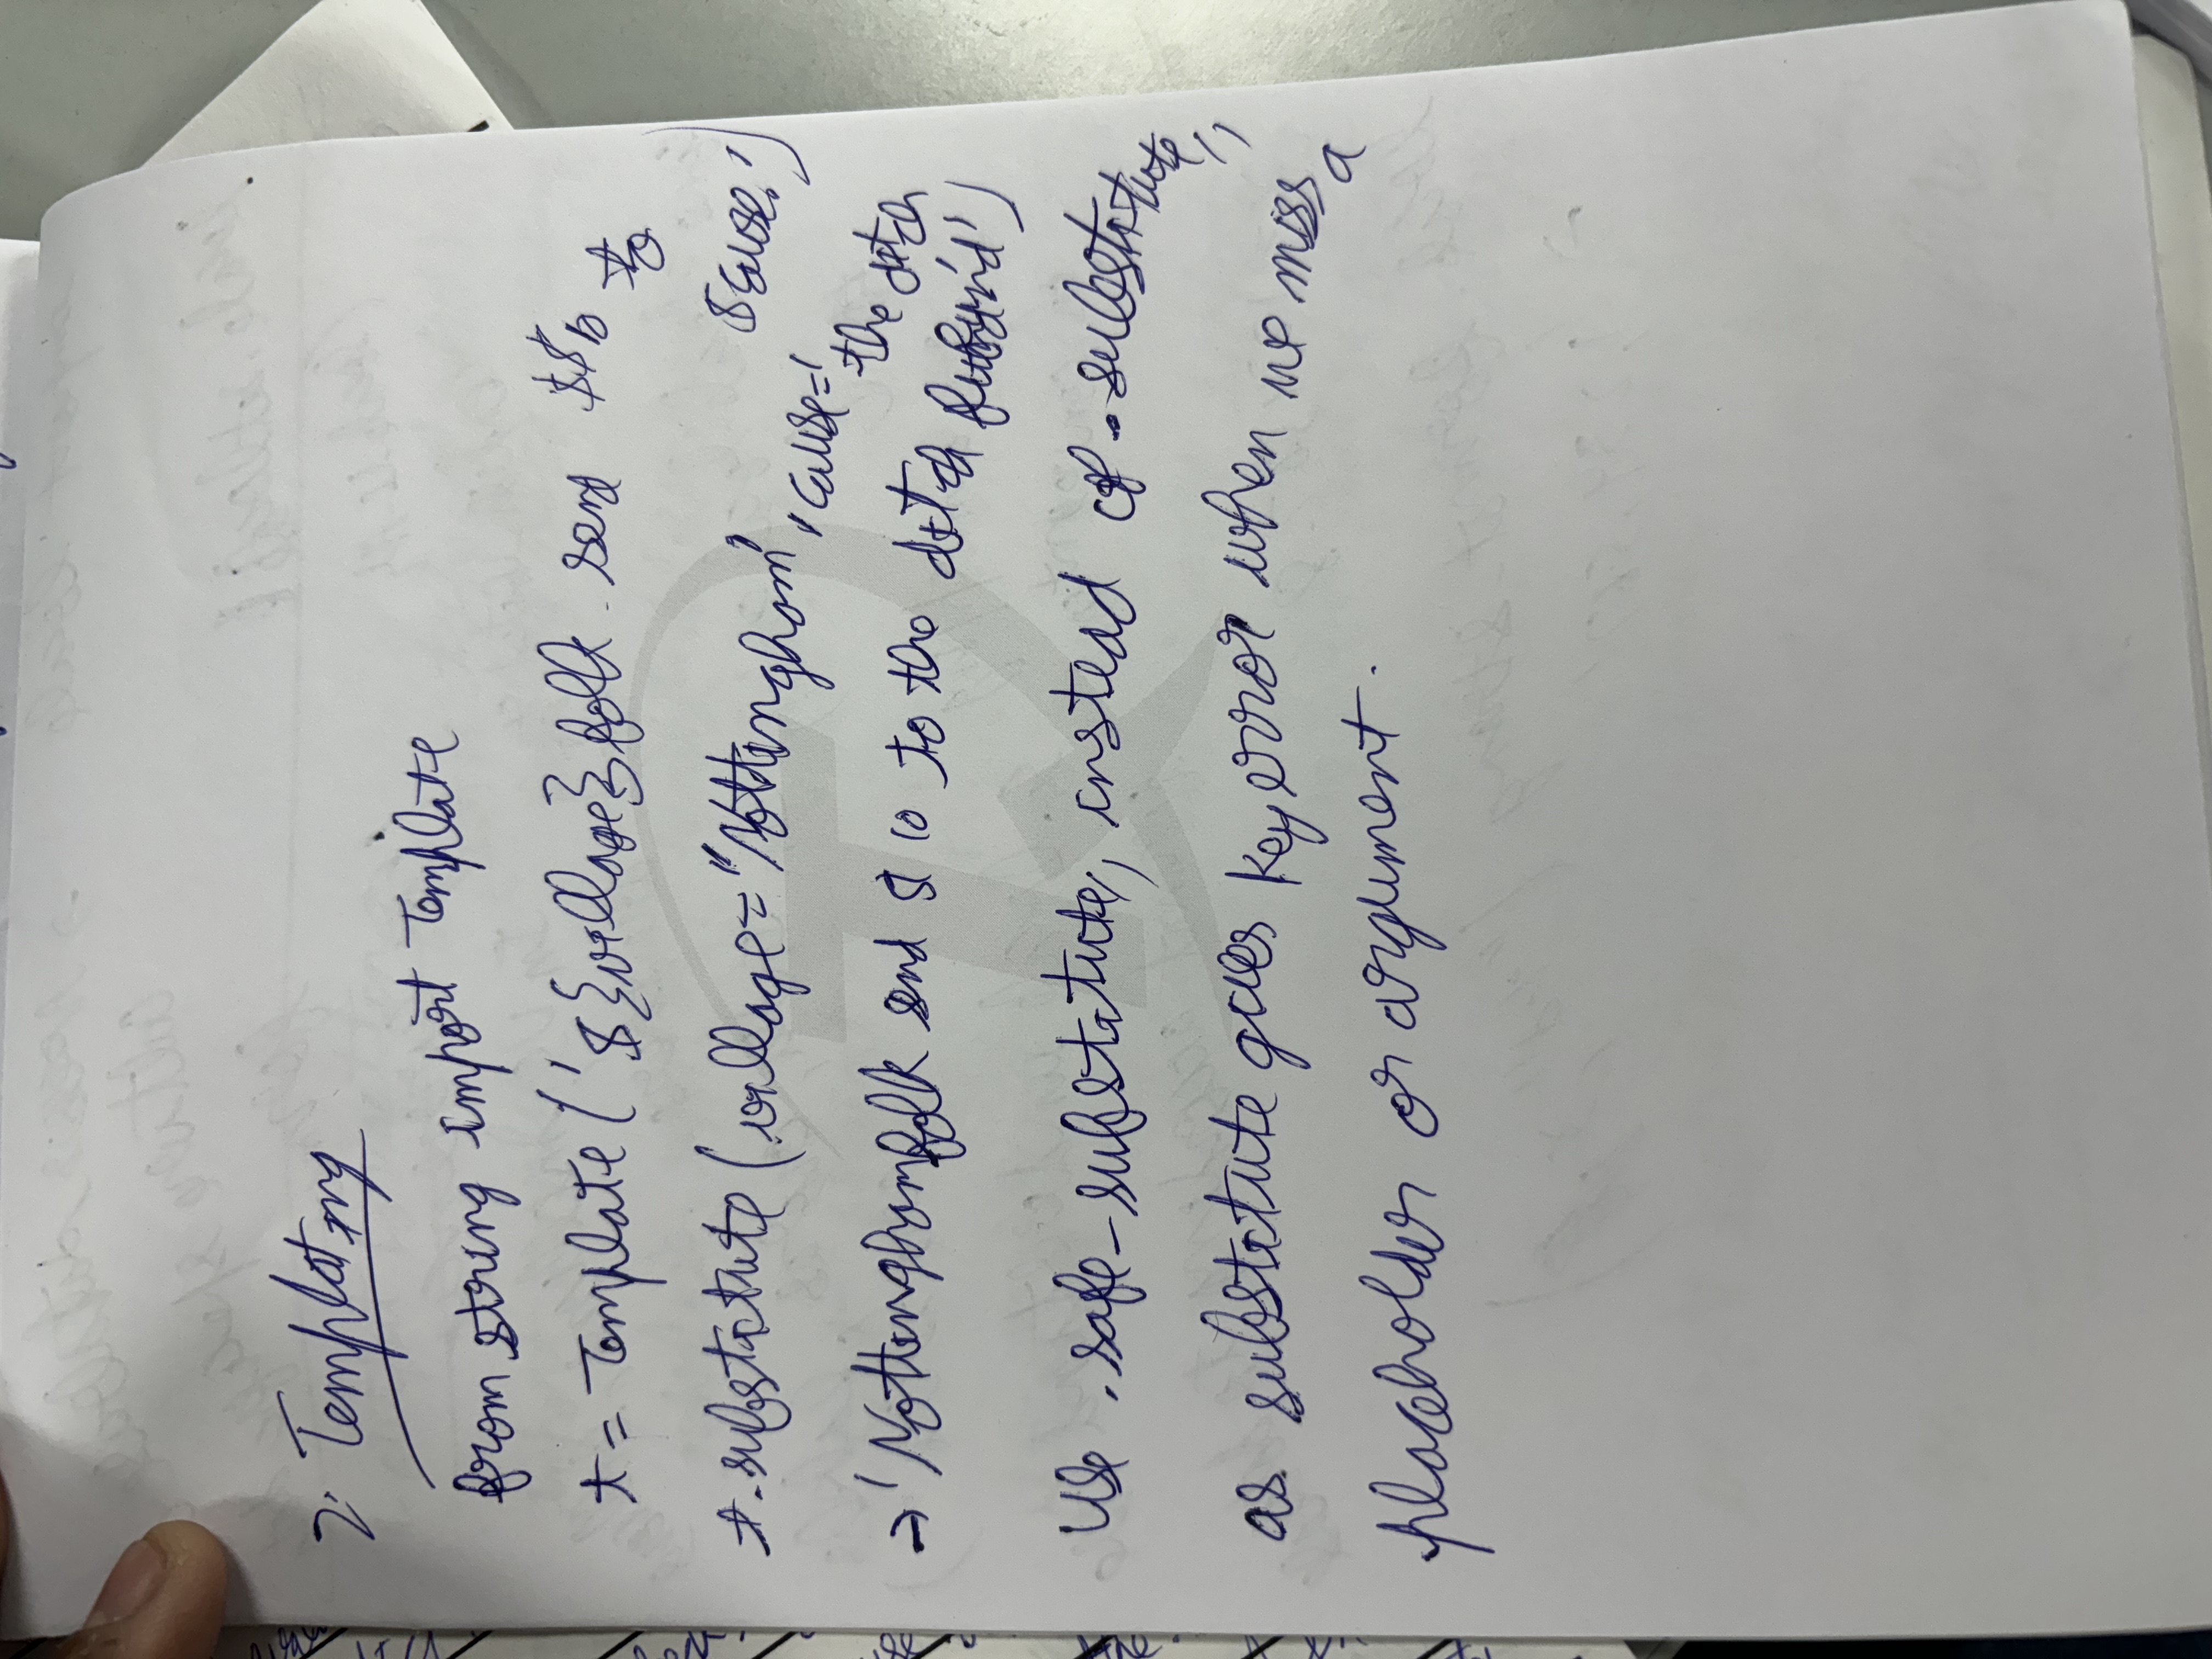 2. Templating
from string import Template
t = Template('${village}folk send $$10 to
$cause.')
t.substitute(village="Nottingham", cause='
the ditch
fund')
→ 'Nottinghamfolk send $10 to the ditch
Use .safe_substitute, instead of .substitute,
as substitute gives key error when we miss a
placeholder or argument.